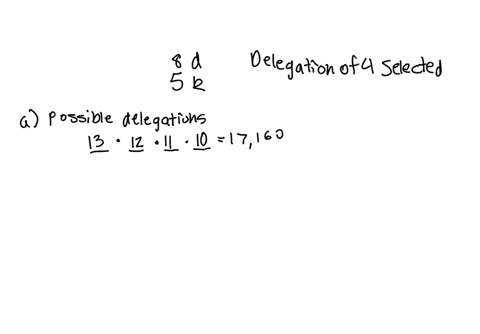 8 d
5 R
Delegation of 4 Selected
a) Possible delegations
13 · 12 · 11 · 10 = 17,160